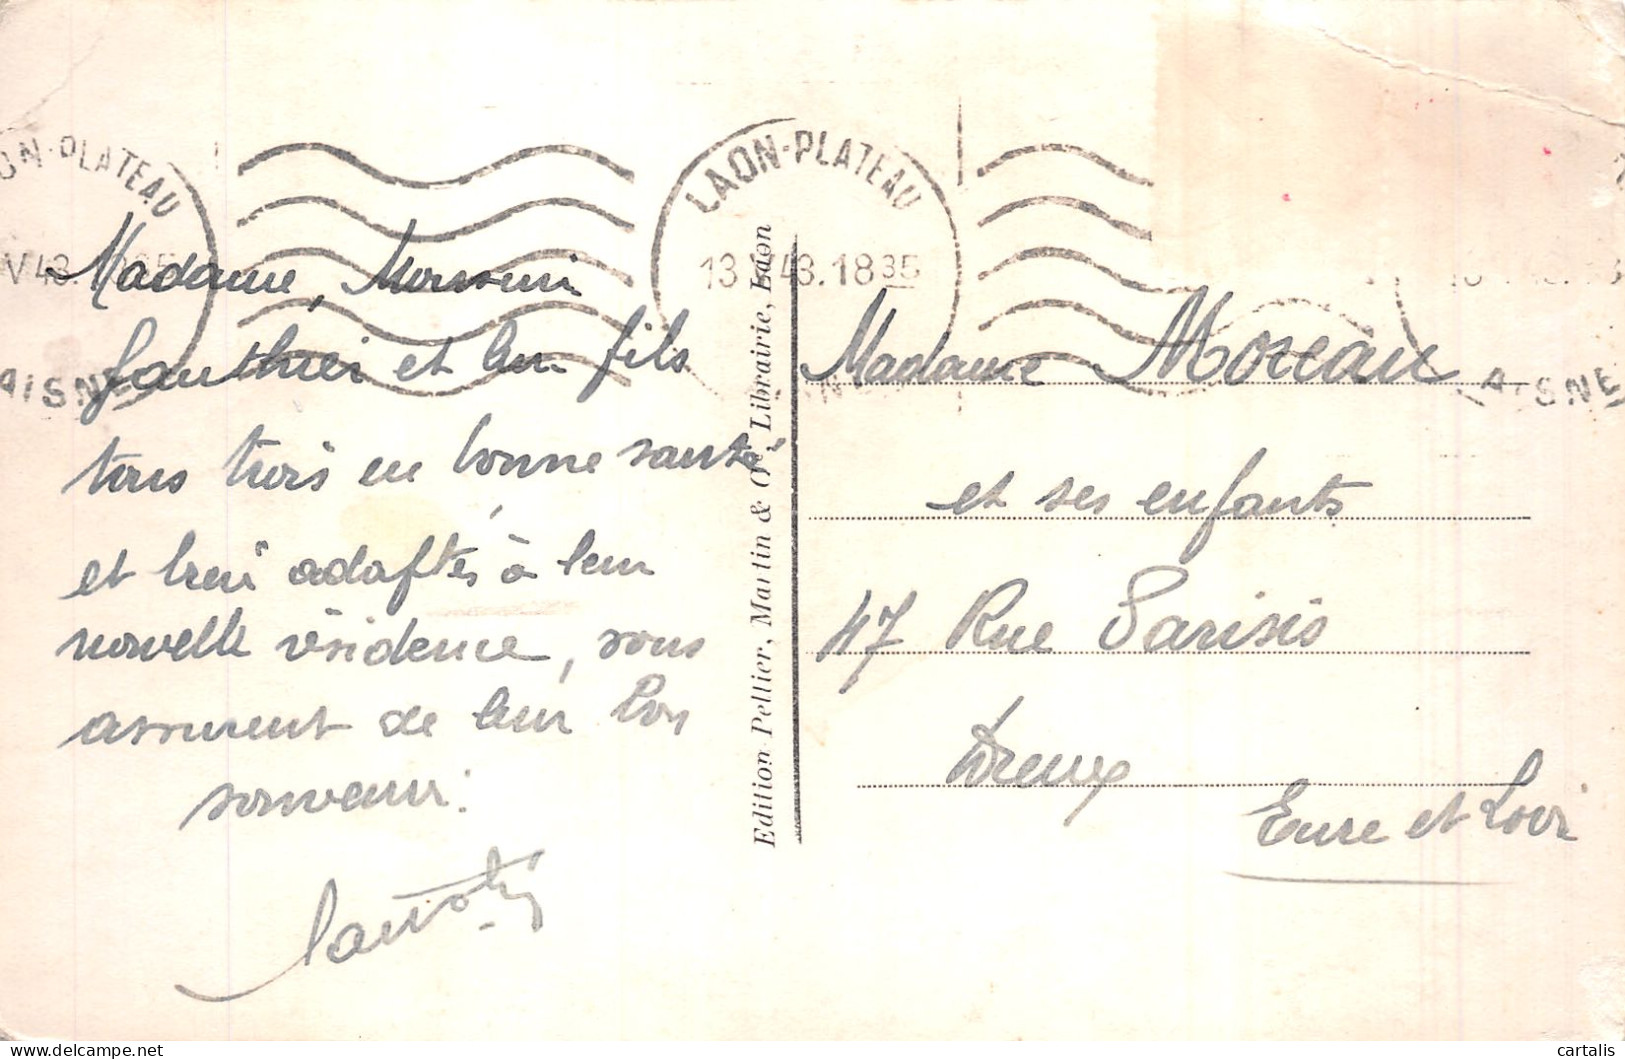 LAON-PLATEAU
13 V 43.18 35
AISNE
Madame, Monsieur
Gauthier et leur fils
tous trois en bonne santé
et bien adaptés à leur
nouvelle résidence, vous
assurent de leur bon
souvenir.
Edition Pellier, Martin & Cie, Librairie, Laon
Madame Moreau
et ses enfants
47 Rue Parisis
Dreux
Eure et Loir
cartalis